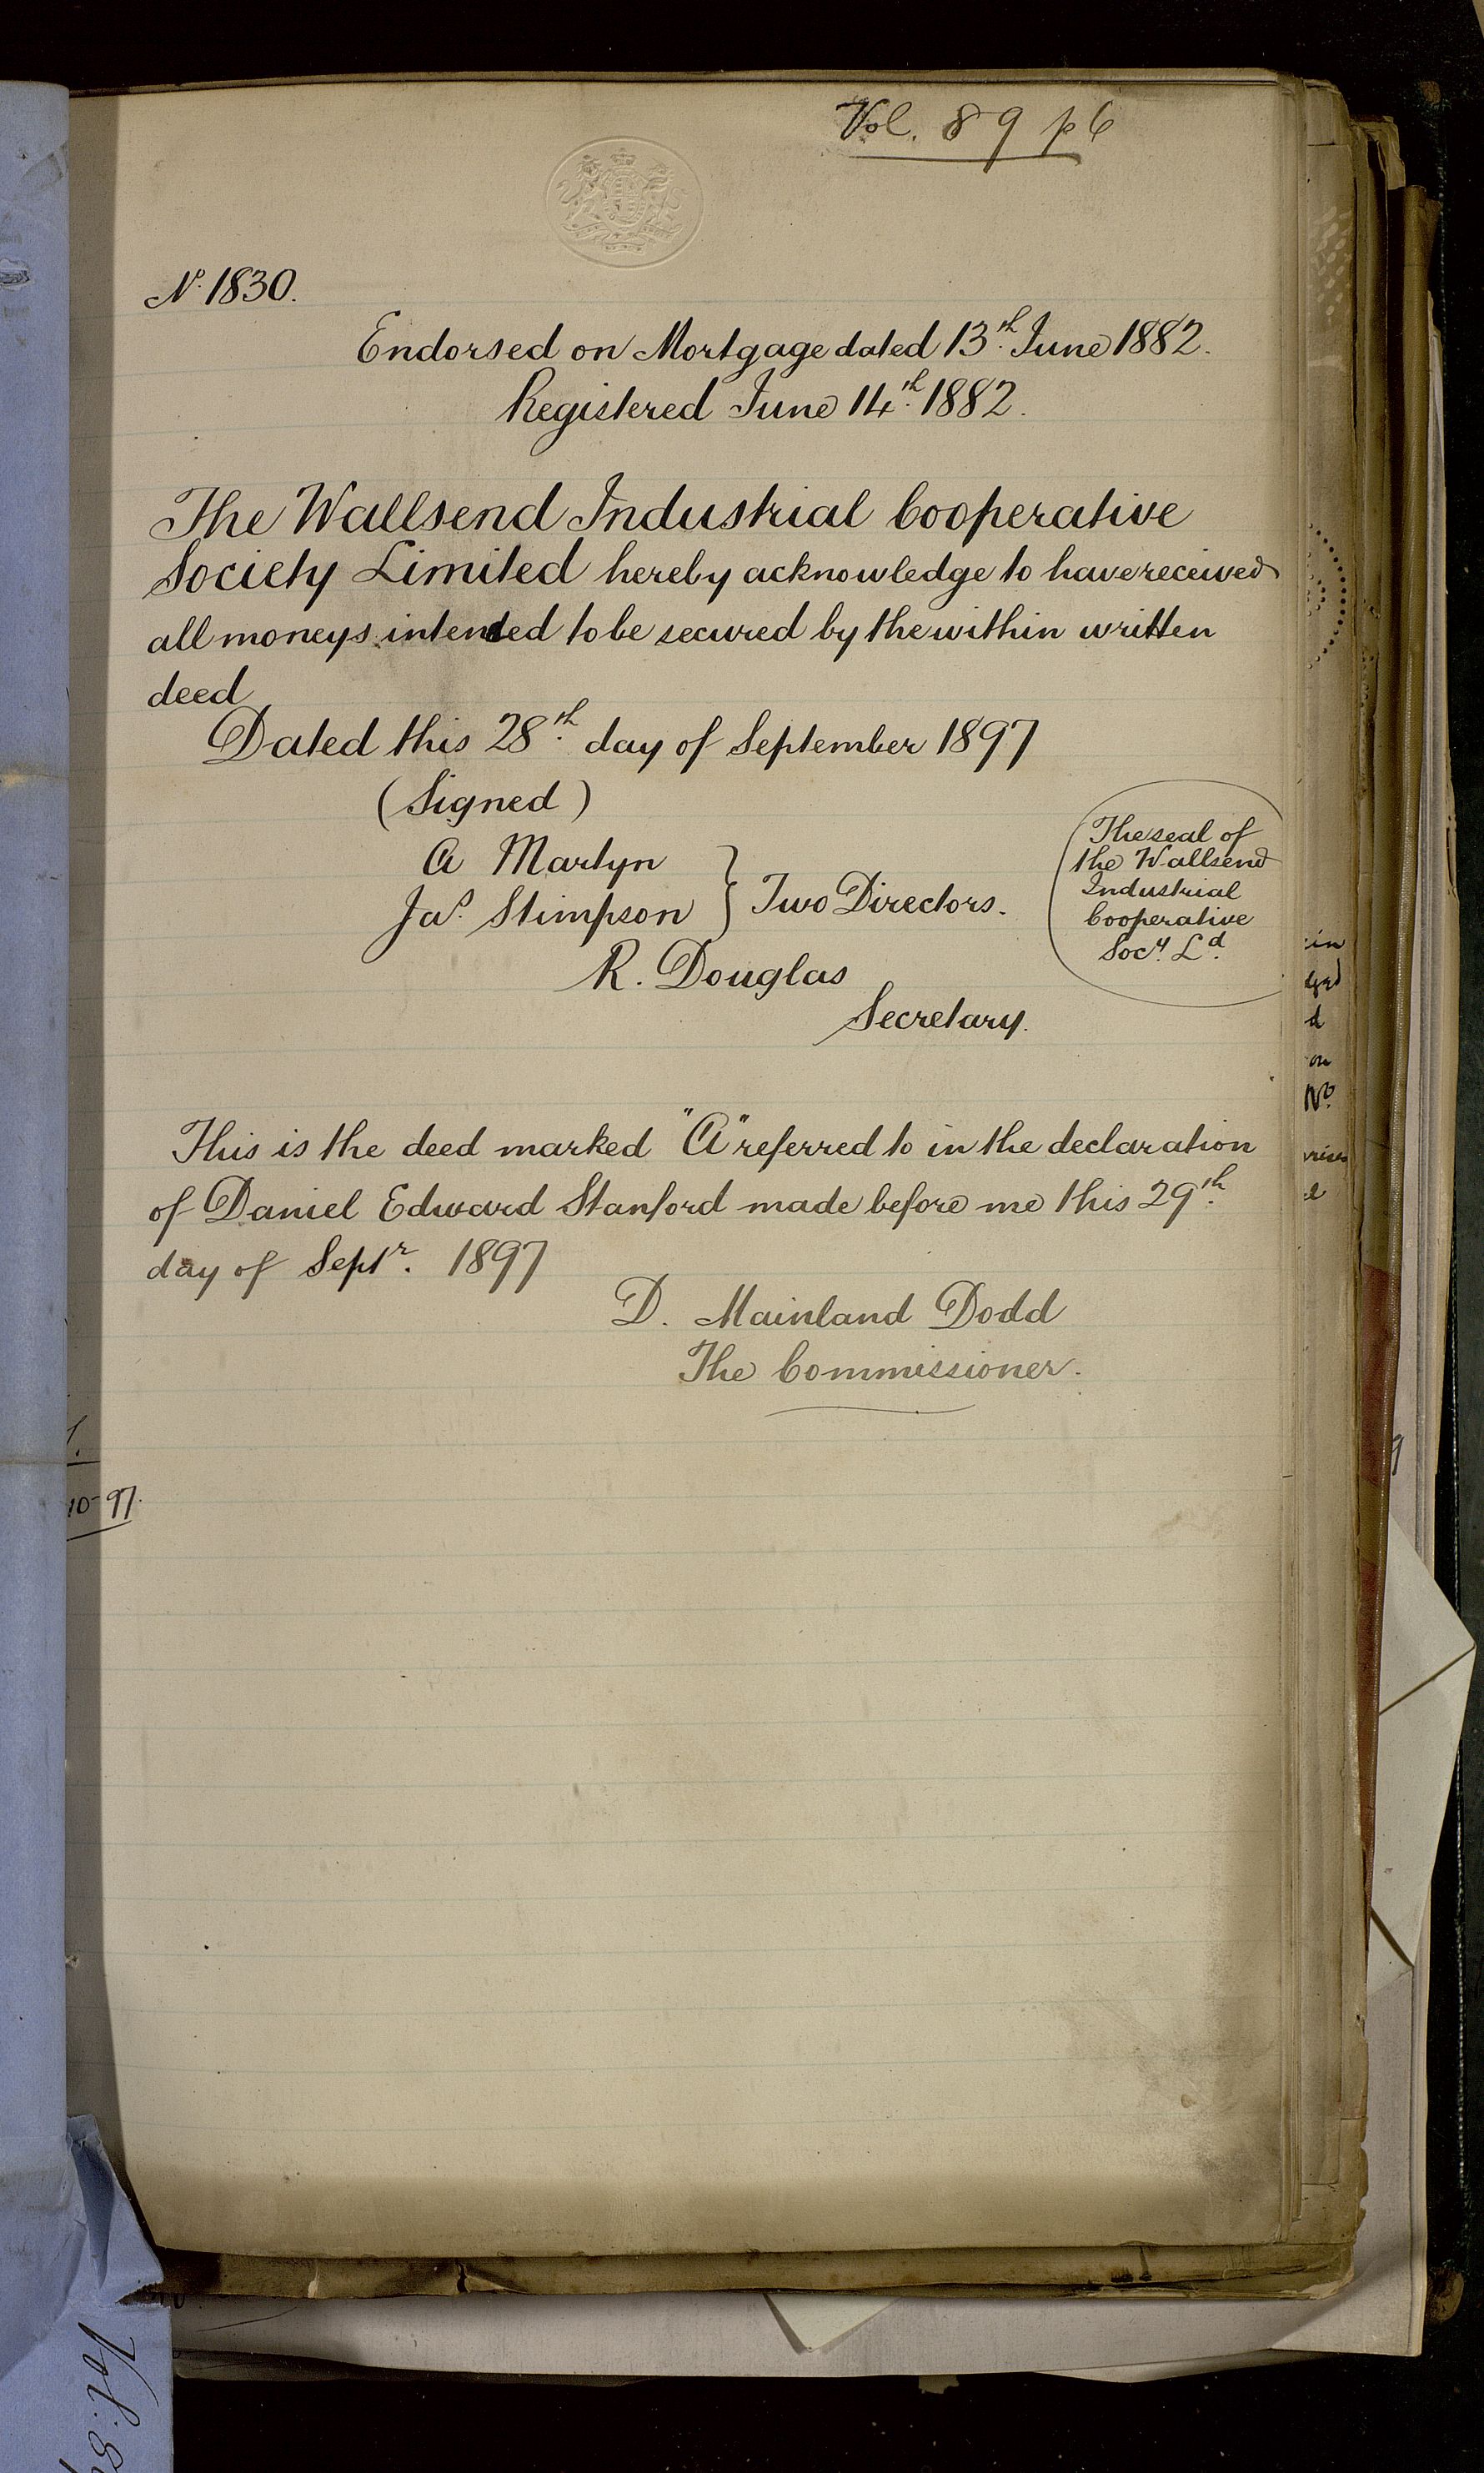 Vol. 89 p 6
No. 1830.
Endorsed on Mortgage dated 13th June 1882.
Registered June 14th 1882.
The Wallsend Industrial Cooperative
Society Limited hereby acknowledge to have received
all moneys intended to be secured by the within written
deed
Dated this 28th day of September 1897
(Signed)
A Martyn
Jas. Stimpson } Two Directors.
R. Douglas
Secretary.
The seal of
the Wallsend
Industrial
Cooperative
Socy. Ld.
This is the deed marked "A" referred to in the declaration
of Daniel Edward Stanford made before me this 29th
day of Septr. 1897
D. Mainland Dodd
The Commissioner.
10-97.
in
d
on
No.